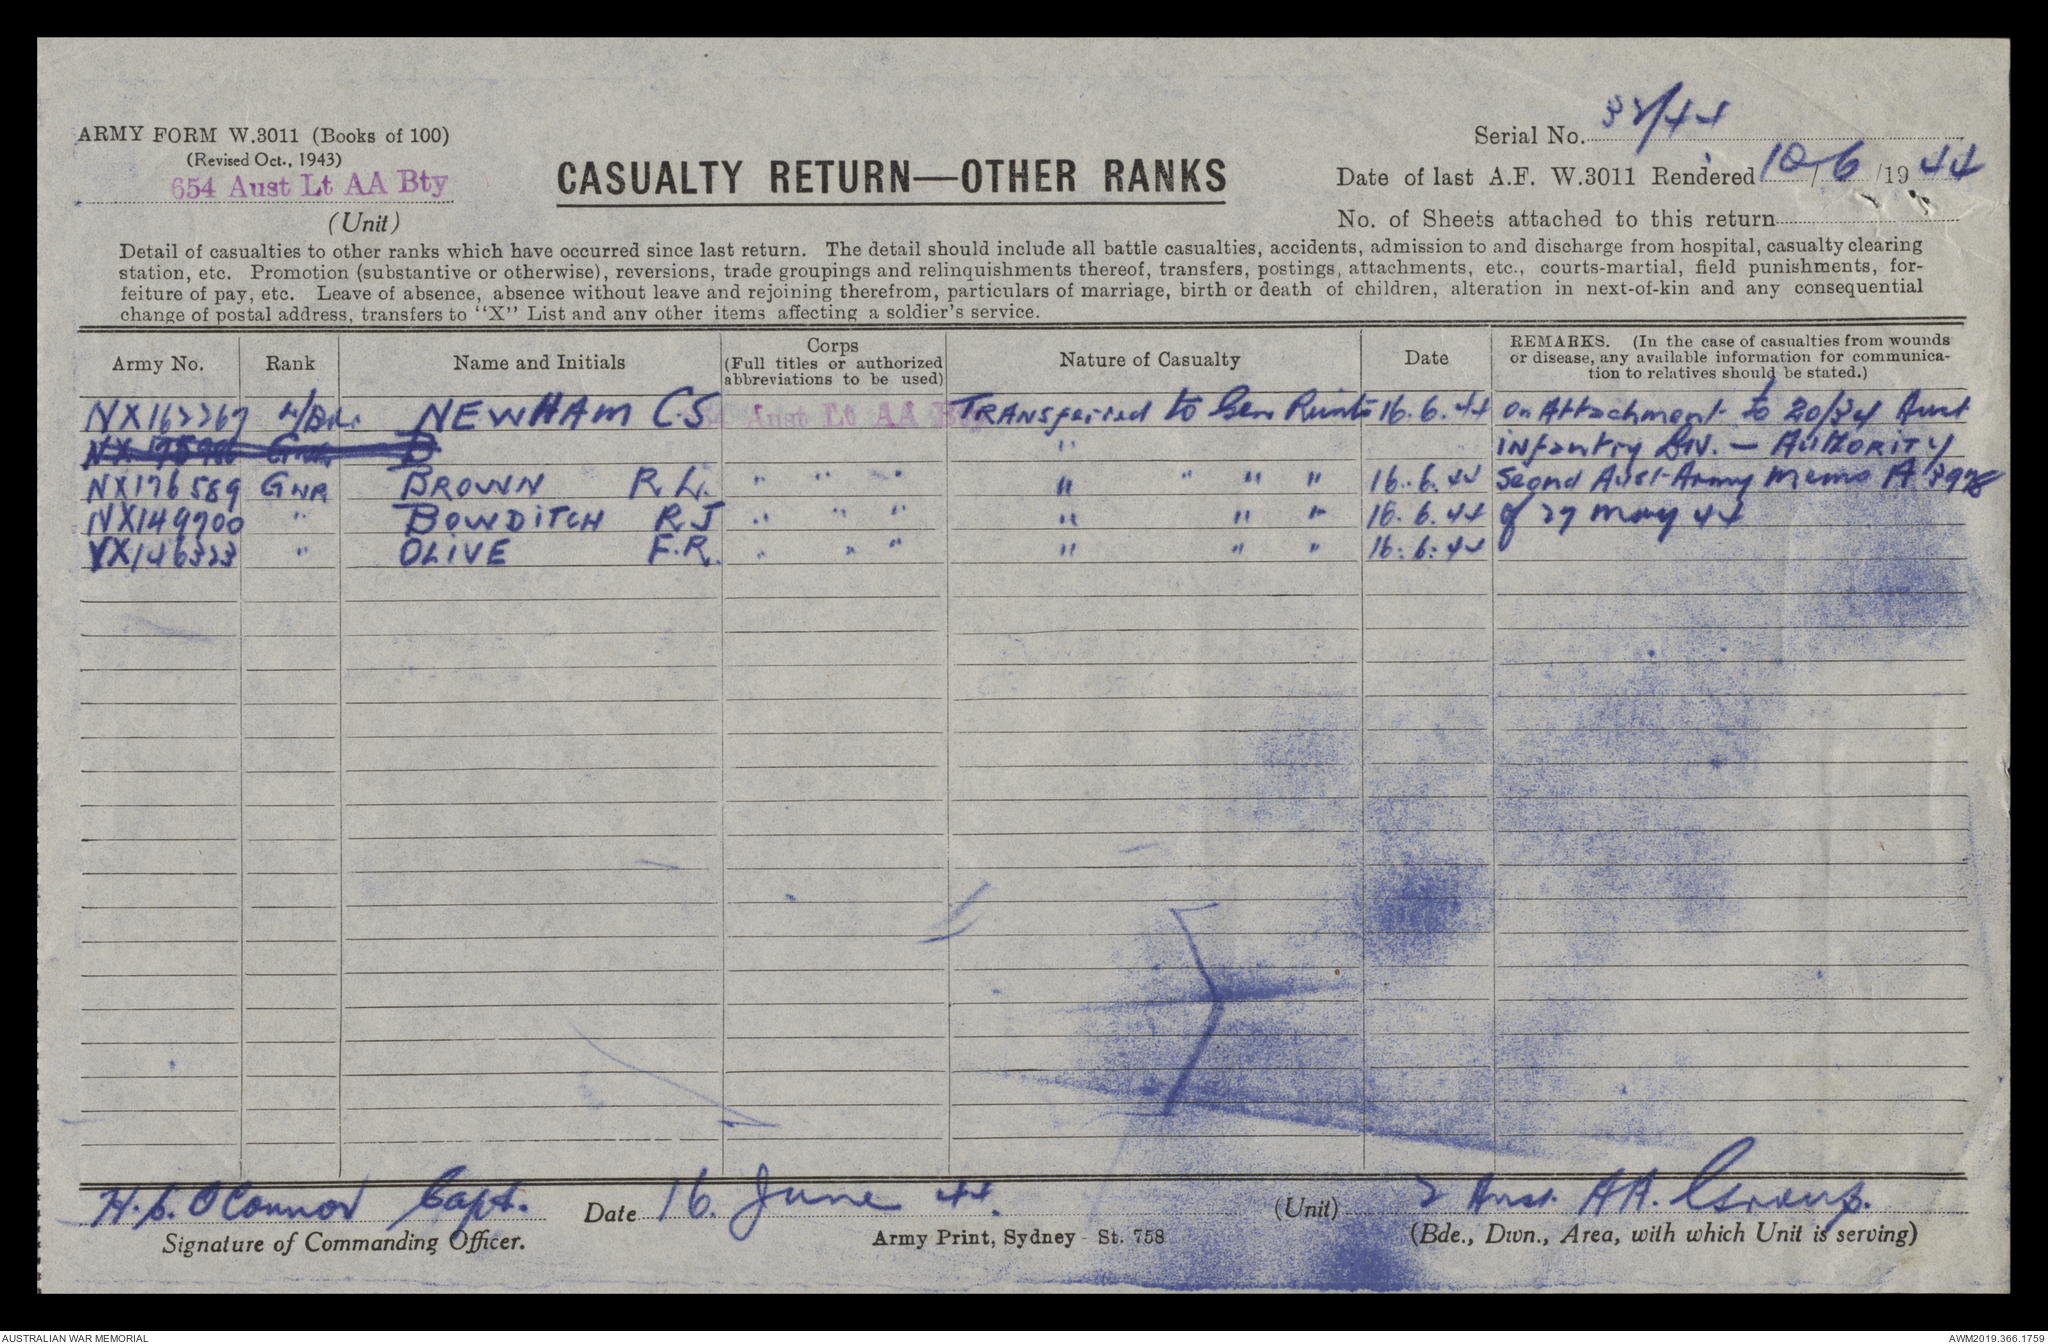 ARMY FORM W.3011 (Books of 100)
(Revised Oct., 1943)
654 Aust Lt AA Bty
(Unit)
CASUALTY RETURN—OTHER RANKS
Serial No. 32/44
Date of last A.F. W.3011 Rendered 10/6/1944
No. of Sheets attached to this return
Detail of casualties to other ranks which have occurred since last return. The detail should include all battle casualties, accidents, admission to and discharge from hospital, casualty clearing
station, etc. Promotion (substantive or otherwise), reversions, trade groupings and relinquishments thereof, transfers, postings, attachments, etc., courts-martial, field punishments, for-
feiture of pay, etc. Leave of absence, absence without leave and rejoining therefrom, particulars of marriage, birth or death of children, alteration in next-of-kin and any consequential
change of postal address, transfers to "X" List and any other items affecting a soldier's service.
Army No. Rank Name and Initials Corps (Full titles or authorized abbreviations to be used) Nature of Casualty Date REMARKS. (In the case of casualties from wounds or disease, any available information for communica-tion to relatives should be stated.)
NX162267 L/Bdr. NEWHAM C.S 654 Aust Lt AA Bty TRANSferred to Gen 16.6.44 on Attachment to Aust
" infantry Div. — AUTHORITY
NX176589 GNR BROWN R.L. " " " " " " " 16.6.44 Second Aust Army Memo A 3978
NX149700 " BOWDITCH R.J " " " " " " 16.6.44 of 27 May 44
VX146323 " OLIVE F.R. " " " " " " 16.6.44
H.S. O'Connor Capt. Date 16. June 44. (Unit) 2 Aust. AA. Group.
Signature of Commanding Officer. Army Print, Sydney - St. 758 (Bde., Dwn., Area, with which Unit is serving)
AUSTRALIAN WAR MEMORIAL AWM2019.366.1759